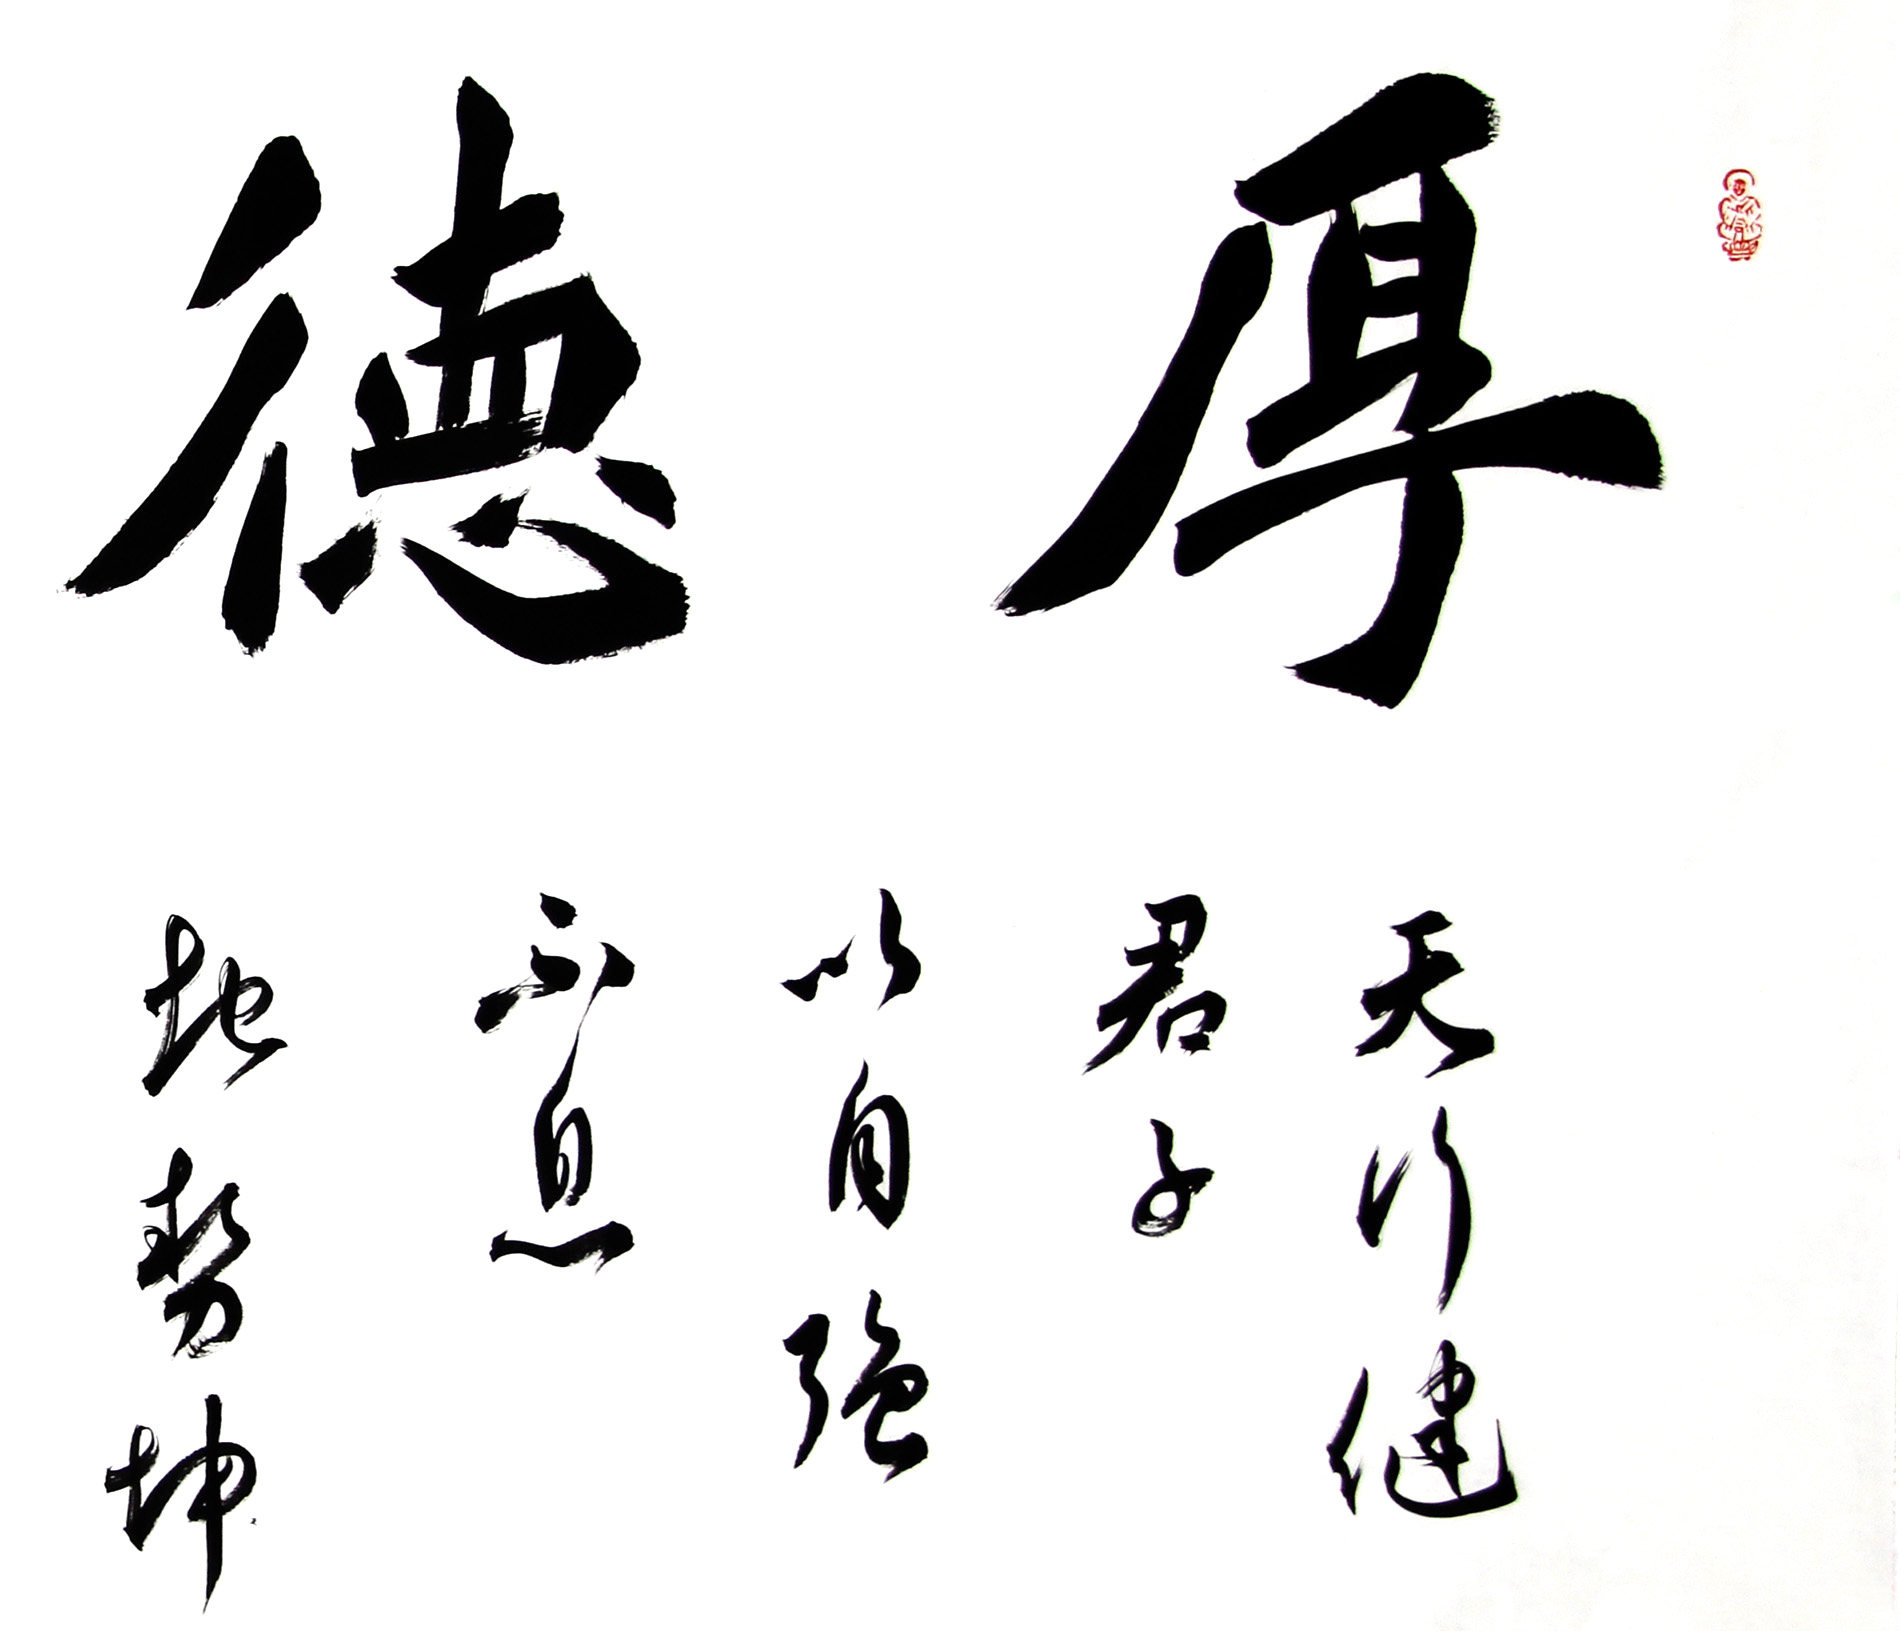 厚德
天行健
君子
以自强
不息
地势坤